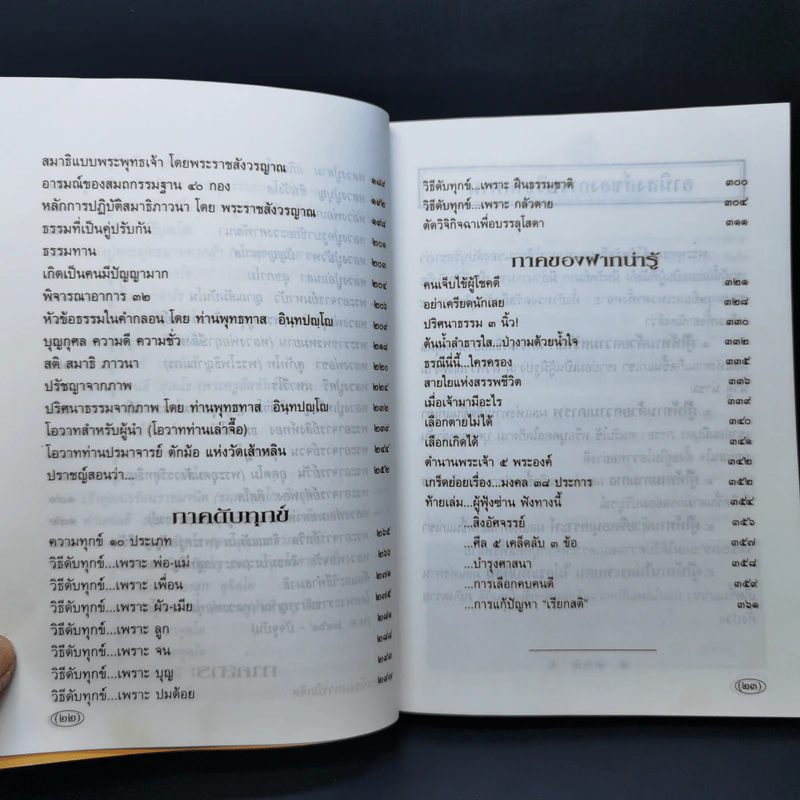 สมาธิแบบพระพุทธเจ้า โดยพระราชสังวรญาณ ๑๘๔
อารมณ์ของสมถกรรมฐาน ๔๐ กอง ๑๙๒
หลักการปฏิบัติสมาธิภาวนา โดย พระราชสังวรญาณ ๑๙๘
ธรรมที่เป็นคู่ปรับกัน ๒๐๑
ธรรมทาน ๒๐๑
เกิดเป็นคนมีปัญญามาก ๒๐๓
พิจารณาอาการ ๓๒ ๒๐๖
หัวข้อธรรมในคำกลอน โดย ท่านพุทธทาส อินฺทปญฺโญ ๒๐๘
บุญกุศล ความดี ความชั่ว ๒๑๘
สติ สมาธิ ภาวนา ๒๒๔
ปรัชญาจากภาพ
ปริศนาธรรมจากภาพ โดย ท่านพุทธทาส อินฺทปญฺโญ ๒๓๒
โอวาทสำหรับผู้นำ (โอวาทท่านเล่าจื๊อ)
โอวาทท่านปรมาจารย์ ตักม้อ แห่งวัดเส้าหลิน
ปราชญ์สอนว่า... ๒๕๒
ภาคดับทุกข์
ความทุกข์ ๑๐ ประเภท ๒๖๕
วิธีดับทุกข์...เพราะ พ่อ-แม่ ๒๖๖
วิธีดับทุกข์...เพราะ เพื่อน ๒๗๑
วิธีดับทุกข์...เพราะ ผัว-เมีย ๒๗๕
วิธีดับทุกข์...เพราะ ลูก ๒๘๑
วิธีดับทุกข์...เพราะ จน ๒๘๘
วิธีดับทุกข์...เพราะ บุญ ๒๙๓
วิธีดับทุกข์...เพราะ ปมด้อย ๒๙๗
(๒๒)
วิธีดับทุกข์...เพราะ ฝืนธรรมชาติ ๓๐๐
วิธีดับทุกข์...เพราะ กลัวตาย ๓๐๔
ตัดวิจิกิจฉาเพื่อบรรลุโสดา ๓๑๑
ภาคของฝากน่ารู้
คนเจ็บไข้ผู้โชคดี ๓๒๑
อย่าเครียดนักเลย ๓๒๘
ปริศนาธรรม ๓ นิ้ว! ๓๓๐
ต้นน้ำลำธารใส...ป่างามด้วยน้ำใจ ๓๓๒
ธรณีนี่นี้...ใครครอง ๓๓๕
สายใยแห่งสรรพชีวิต ๓๓๖
เมื่อเจ้ามามีอะไร ๓๓๙
เลือกตายไม่ได้ ๓๔๐
เลือกเกิดได้ ๓๔๑
ตำนานพระเจ้า ๕ พระองค์ ๓๔๒
เกร็ดย่อยเรื่อง...มงคล ๓๘ ประการ ๓๕๒
ท้ายเล่ม...ผู้ฟุ้งซ่าน ฟังทางนี้ ๓๕๔
...สิ่งอัศจรรย์ ๓๕๖
...ศีล ๕ เคล็ดลับ ๓ ข้อ ๓๕๗
...บำรุงศาสนา ๓๕๘
...การเลือกคบคนดี ๓๕๙
...การแก้ปัญหา "เรียกสติ" ๓๖๑
(๒๓)